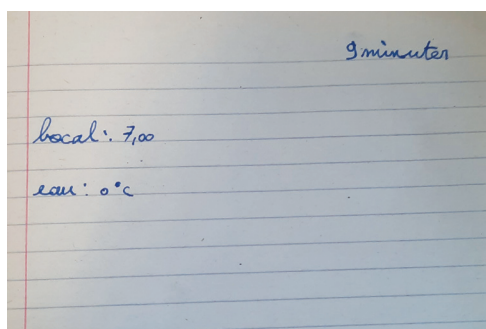 9 minuter
bocal : 7,00
eau : 0°C